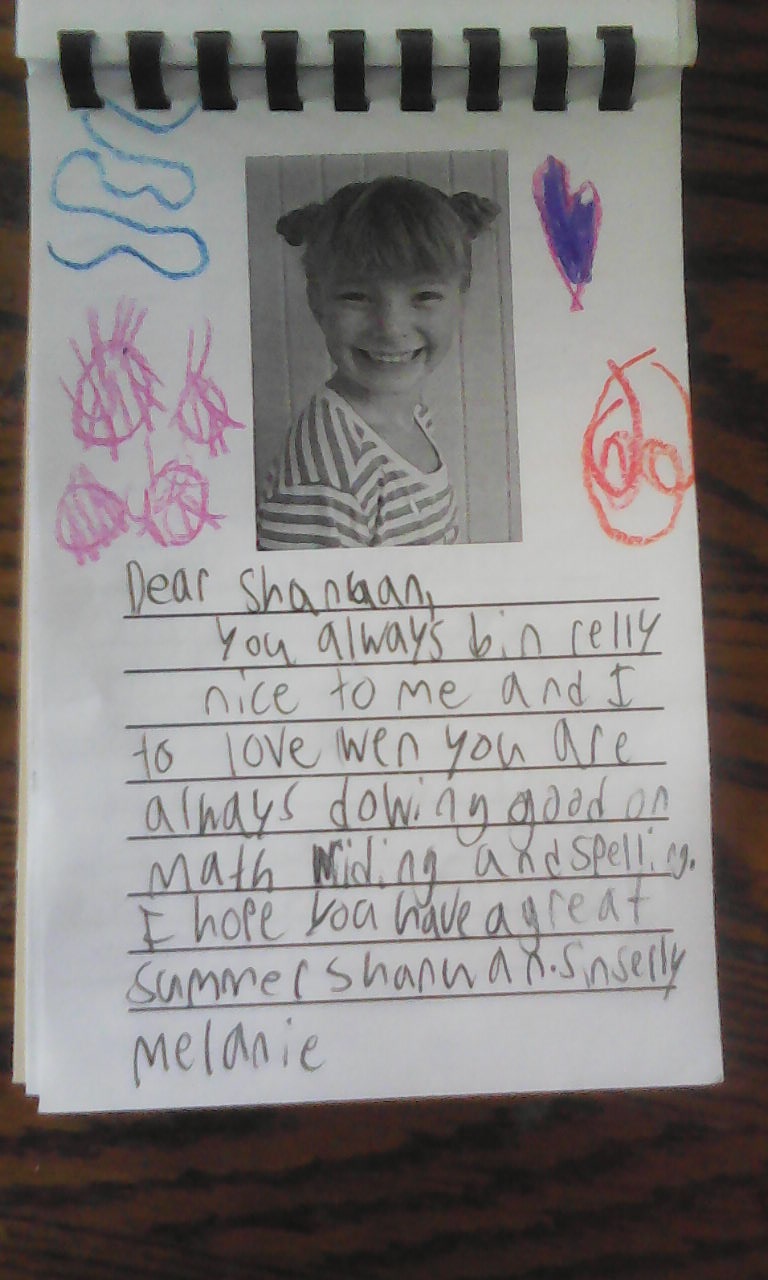 Dear Shannan,
You always bin relly
nice to me and I
to love wen you are
always dowing good on
math Riding and spelling.
I hope you have a great
summer shannan. Sinselly
melanie